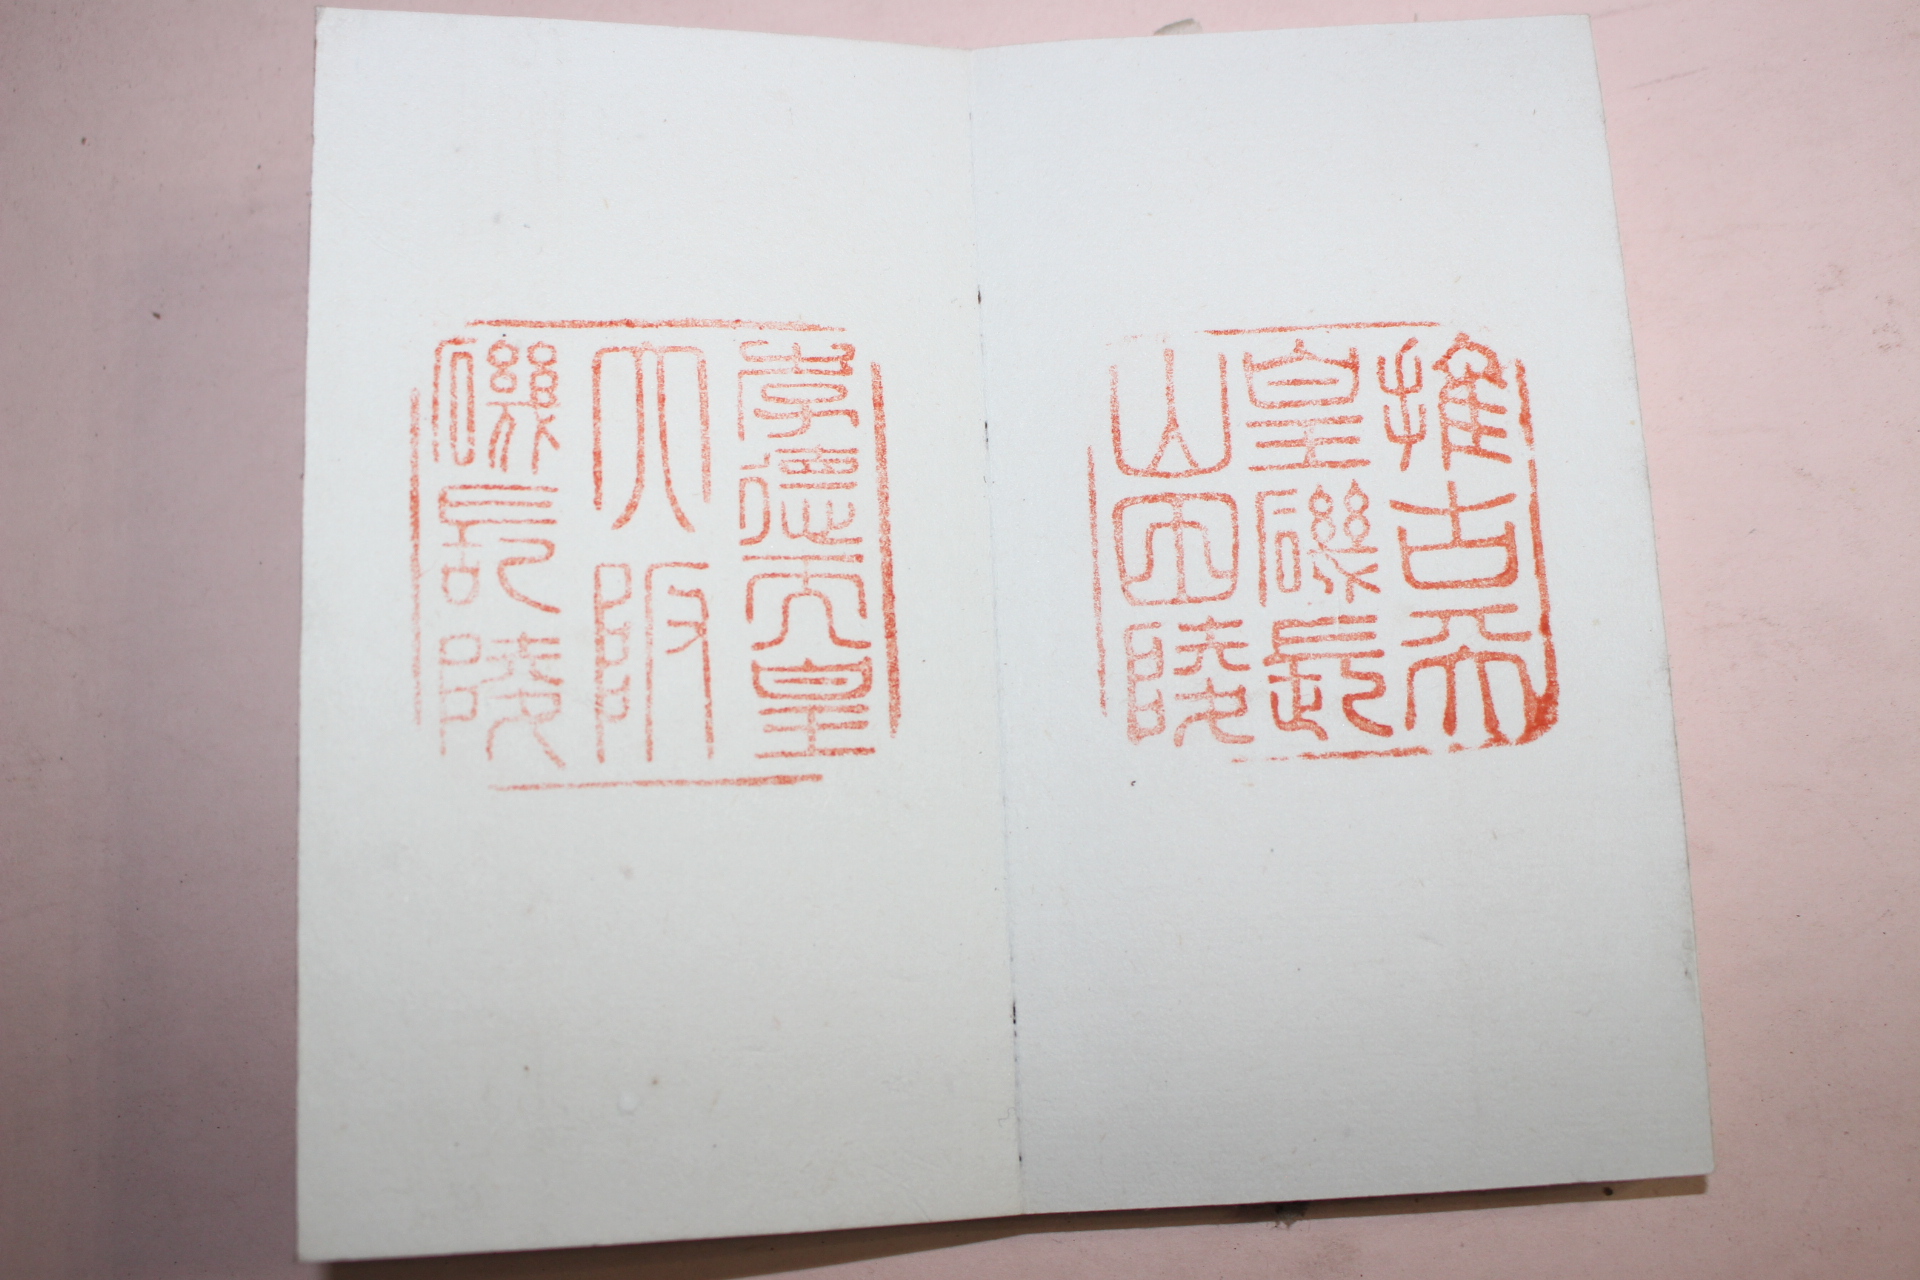 推古天
皇磯長
山田陵
孝徳天皇
大阪
磯長陵